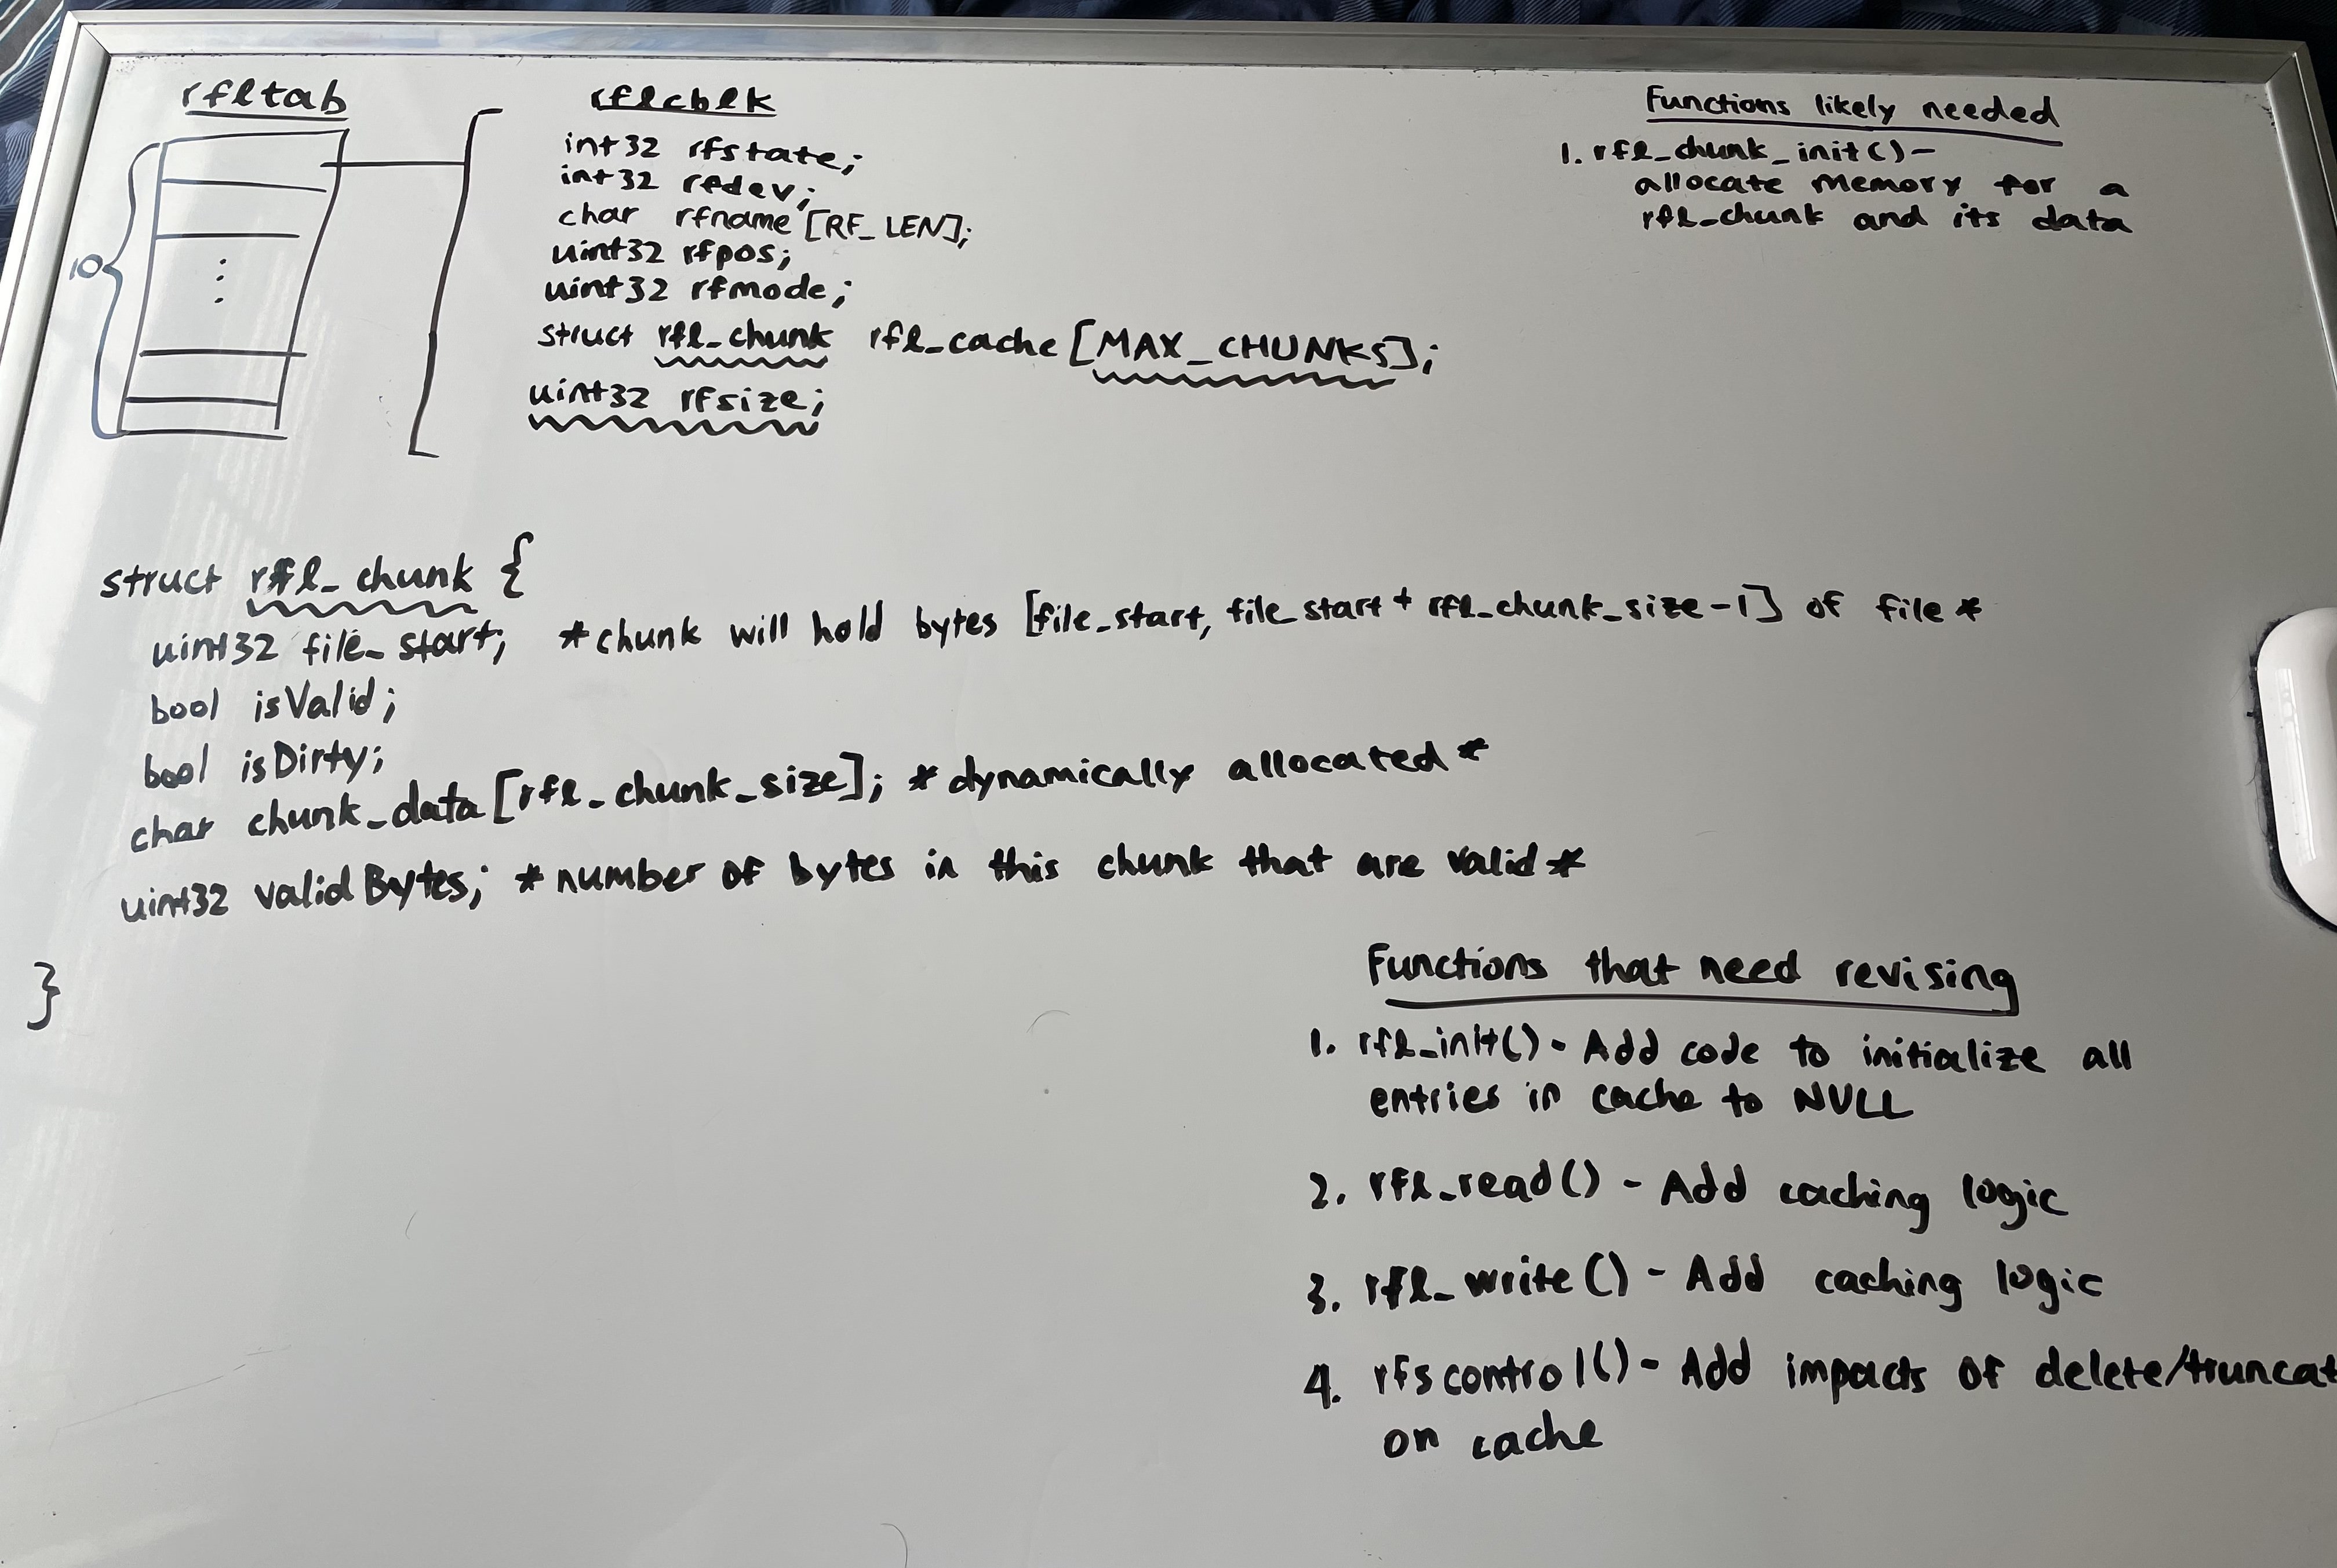 rfltab
10
rflcblk
int32 rfstate;
int32 rfdev;
char rfname [RF_LEN];
uint32 rfpos;
uint32 rfmode;
struct rfl_chunk rfl_cache [MAX_CHUNKS];
uint32 rfsize;
Functions likely needed
1. rfl_chunk_init() -
allocate memory for a
rfl_chunk and its data
struct rfl_chunk {
uint32 file_start; *chunk will hold bytes [file_start, file_start + rfl_chunk_size-1] of file*
bool isValid;
bool isDirty;
char chunk_data [rfl_chunk_size]; *dynamically allocated*
uint32 validBytes; *number of bytes in this chunk that are valid*
}
Functions that need revising
1. rfl_init() - Add code to initialize all
entries in cache to NULL
2. rfl_read() - Add caching logic
3. rfl_write() - Add caching logic
4. rfscontrol() - Add impacts of delete/truncat
on cache